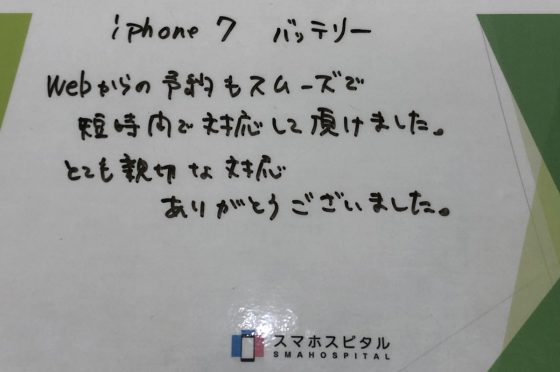 iphone 7 バッテリー
Webからの予約もスムーズで
短時間で対応して頂けました。
とても親切な対応
ありがとうございました。
スマホスピタル
SMAHOSPITAL